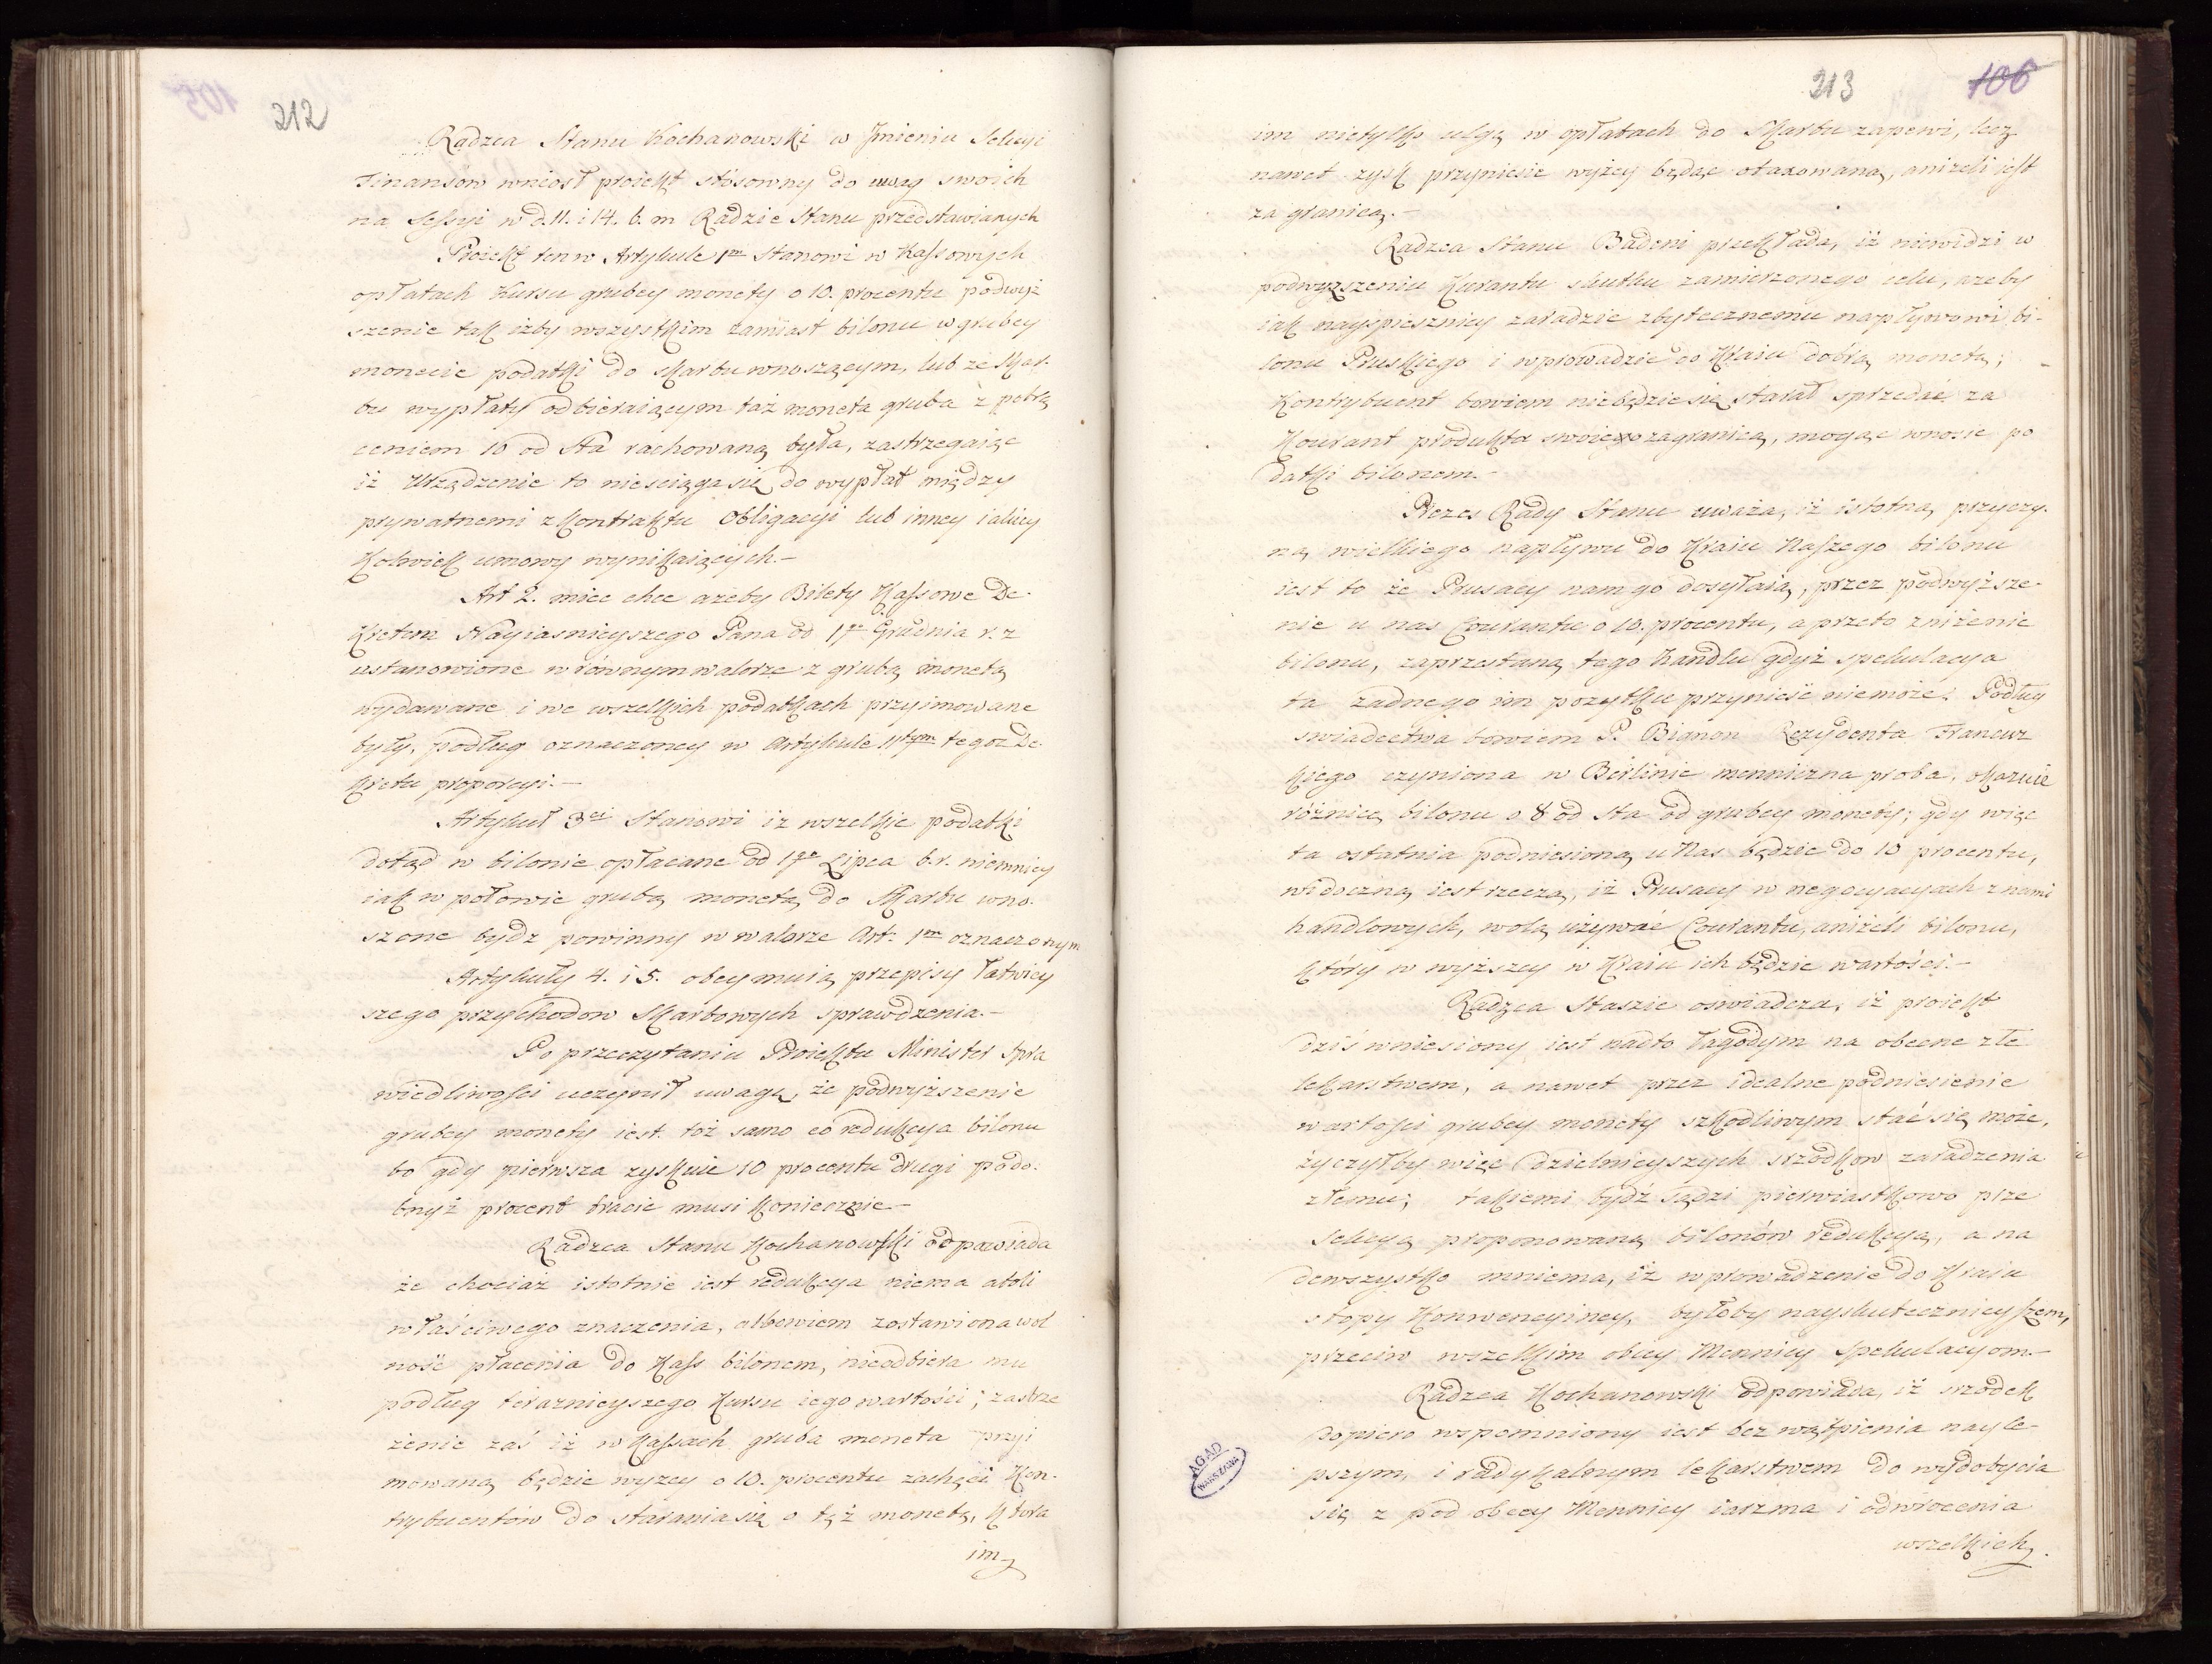 212
Radzca Stanu Kochanowski w Jmieniu Sekcyi
Finansow wniosł proiekt stósowny do uwag swoich
na Sessyi w d. 11. i 14. b. m Radzie Stanu przedstawianych
Proiekt ten w Artykule 1m Stanowi w Kassowych
opłatach Kursu grubey monety o 10. procentu podwyż
szenie tak iżby wszystkim zamiast bilonu w grubey
monecie podatki do Skarbu wnoszącym, lub ze Skar-
bu wypłaty odbieraiącym taż moneta gruba z potrą
ceniem 10 od Sta rachowaną była, zastrzegaiąc
iż Urządzenie to nieściąga się do wypłat między
prywatnemi z Kontraktu Obligacyi lub inney iakiey
Kolwiek umowy wynikaiących.-
Art 2. miec chce azeby Bilety Kassowe De-
Kretem Nayiasnieyszego Pana od 1go Grudnia r. z
ustanowione w równym walorze z grubą monetą
wydawane i we wszelkich podatkach przyimowane
były, podług oznaczoney w Artykule 11tym tegoz De-
Kretu proporcyi.-
Artykuł 3ci Stanowi iz wszelkie podatki
dotąd w bilonie opłacane od 1go Lipca b. r. niemniey
iak w połowie grubą monetą do Skarbu wno-
szone bydz powinny w walorze Art: 1m oznaczonym
Artykuły 4. i 5. obeymuią przepisy łatwiey
szego przychodow Skarbowych sprawdzenia.-
Po przeczytaniu Proiektu Minister Spra
wiedliwości uczynił uwagę, że podwyższenie
grubey monety iest toż samo co redukcya bilonu
bo gdy pierwsza zyskuie 10 procentu drugi podo-
bnyż procent tracic musi Koniecznie-
Radzca Stanu Kochanowski odpowiada
że chociaż istotnie iest redukcya niema atoli
właściwego znaczenia, albowiem zostawiona wol
ność płacenia do Kass bilonem, nieodbiera mu
podług teraznieyszego Kursu iego wartości; zastrze
żenie zaś iż w Kassach gruba moneta przyi
mowaną będzie wyzey o 10. procentu zachęci Kon-
trybuentów do starania się o tęż monetę, Która
im
213 106
im nietylko ulgę w opłatach do Skarbu zapewi, lecz
nawet zysk przyniesie wyżey będąc otaxowaną, aniżeli iest
za granicą.-
Radzca Stanu Badeni przekłada, iż niewidzi w
podwyższeniu Kurantu skutku zamierzonego celu, azeby
iak nayspieszniey zaradzic zbytecznemu napływowi bi-
lonu Pruskiego i wprowadzic do Kraiu dobrą monetę;
Kontrybuent bowiem niebędzie się starał sprzedać za
Kourant produkta swoie za granicą, mogąc wnosic po
datki bilonem.-
Prezes Rady Stanu uważa, iż istotną przyczy-
ną wielkiego napływu do Kraiu Naszego bilonu
iest to że Prusacy nam go dosyłaią, przez podwyższe-
nie u nas Courantu o 10. procentu, a przeto zniżenie
bilonu, zaprzestaną tego handlu gdyż spekulacya
ta zadnego im pozytku przynieść niemoże. Podług
swiadectwa bowiem P. Bignon Rezydenta Francuz
Kiego czyniona w Berlinie mennicza proba, okazuie
różnicę bilonu o 8 od sta od grubey monety; gdy więc
ta ostatnia podniesioną u Nas będzie do 10 procentu,
widoczną iest rzeczą, iż Prusacy w negocyacyach z nami
handlowych, wolą używać Courantu, aniżeli bilonu,
Który w wyższey w Kraiu ich będzie wartości.-
Radzca Staszic oswiadcza, iż proiekt
dziś wniesiony iest nadto łagodym na obecne złe
lekarstwem, a nawet przez idealne podniesienie
wartości grubey monety szkodliwym stać się może,
życzyłby więc dzielnieyszych srzodkow zaradzenia
złemu; takiemi bydź sądzi pierwiastkowo prze
Sekcyą proponowaną bilonów redukcyą, a na
dewszystko mniema, iż wprowadzenie do Kraiu
stopy Konwencyiney, byłoby nayskutecznieyszem,
przeciw wszelkim obcey Mennicy Spekulacyom.-
Radzca Kochanowski odpowiada, iż srzodek
dopiero wspomniony iest bez wątpienia nayle-
pszym, i radykalnym lekarstwem do wydobycia
się z pod obcey Mennicy iarzma i odwrocenia
wszelkich
AGAD
WARSZAWA